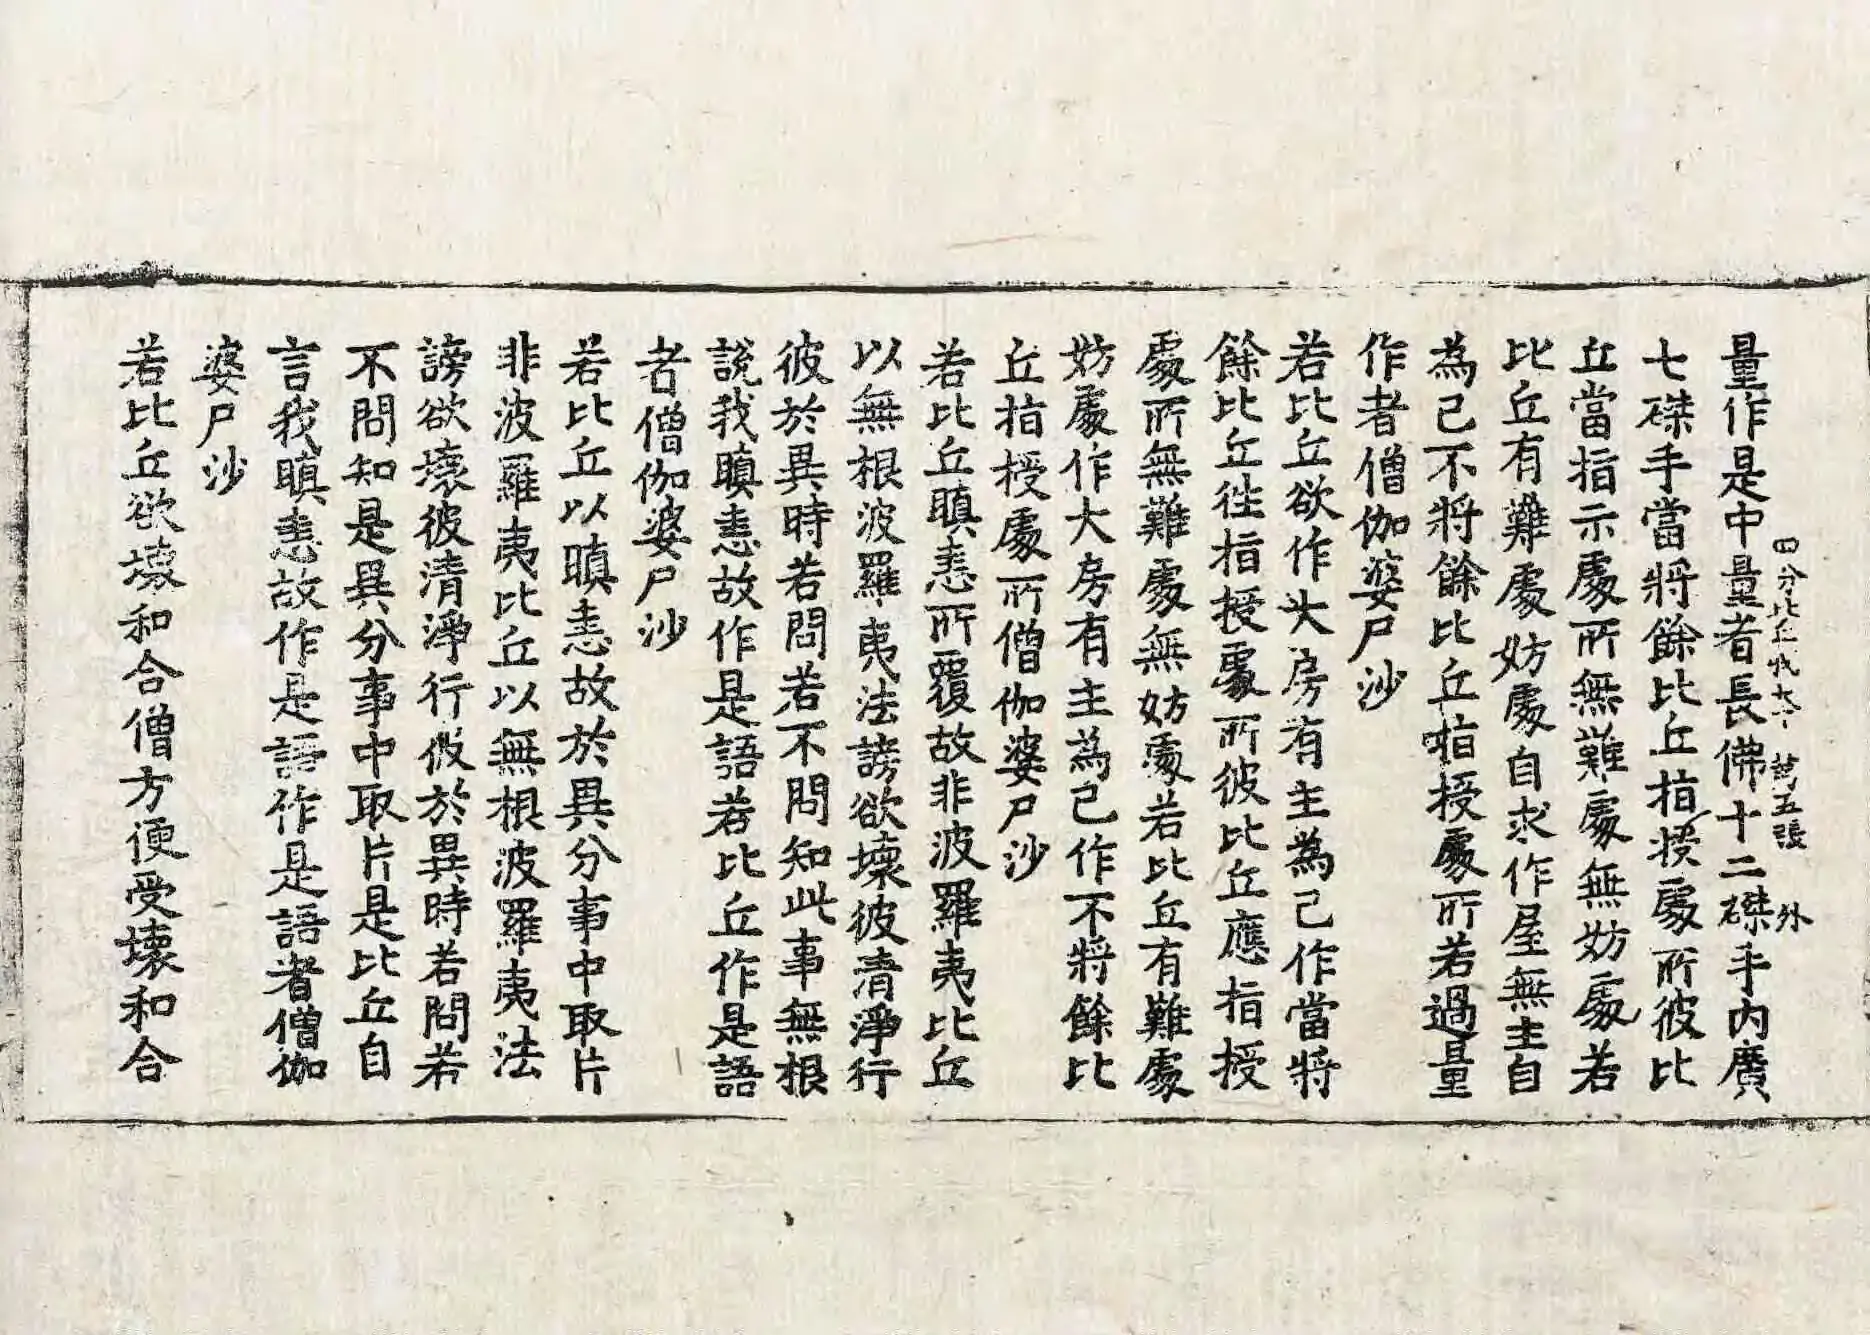 量作是中量者長佛十二磔手內廣
四分比丘戒本 第五張 外
七磔手當將餘比丘指授處所彼比
丘當指示處所無難處無妨處若
比丘有難處妨處自求作屋無主自
為己不將餘比丘指授處所若過量
作者僧伽婆尸沙
若比丘欲作大房有主為己作當將
餘比丘往指授處所彼比丘應指授
處所無難處無妨處若比丘有難處
妨處作大房有主為己作不將餘比
丘指授處所僧伽婆尸沙
若比丘瞋恚所覆故非波羅夷比丘
以無根波羅夷法謗欲壞彼清淨行
彼於異時若問若不問知此事無根
說我瞋恚故作是語若比丘作是語
者僧伽婆尸沙
若比丘以瞋恚故於異分事中取片
非波羅夷比丘以無根波羅夷法
謗欲壞彼清淨行彼於異時若問若
不問知是異分事中取片是比丘自
言我瞋恚故作是語作是語者僧伽
婆尸沙
若比丘欲壞和合僧方便受壞和合